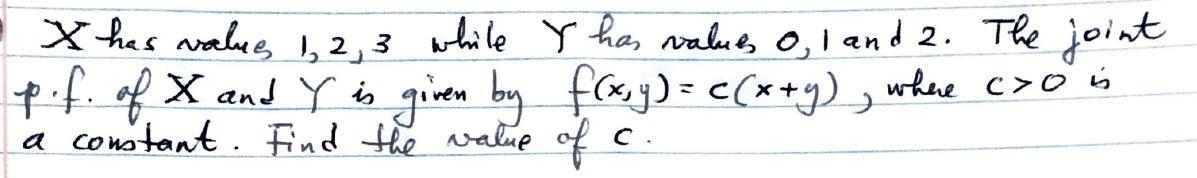 X has values 1, 2, 3 while Y has values 0, 1 and 2. The joint
p.f. of X and Y is given by f(x,y) = c(x+y), where c>0 is
a constant. Find the value of c.